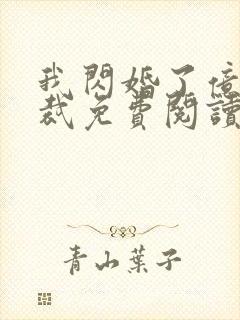 我閃婚了億
裁免費閱讀
青山葉子